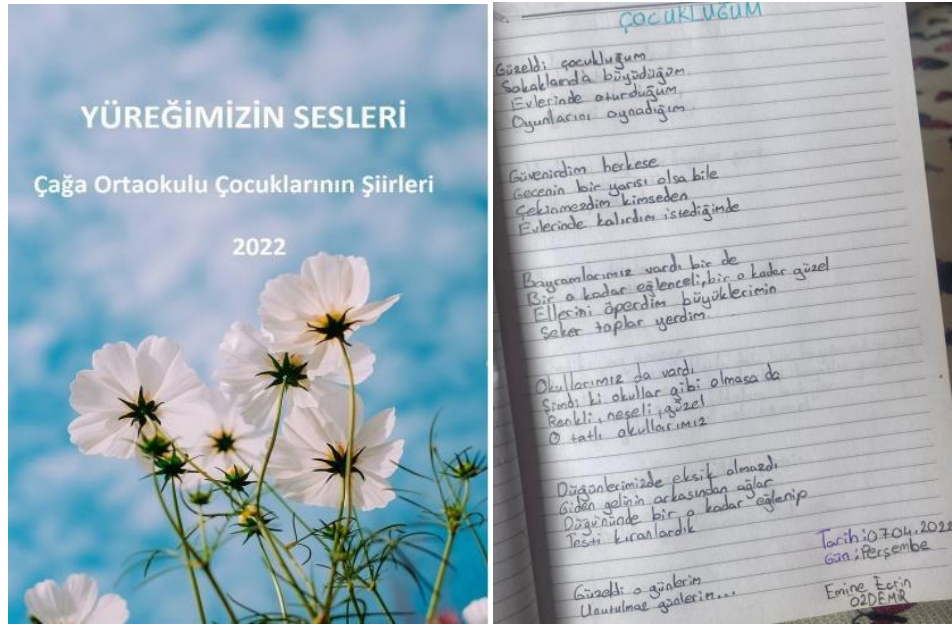 YÜREĞİMİZİN SESLERİ
Çağa Ortaokulu Çocuklarının Şiirleri
2022
ÇOCUKLUĞUM
Güzeldi çocukluğum
Sokaklarında büyüdüğüm
Evlerinde oturduğum
Oyunlarını oynadığım
Güvenirdim herkese
Gecenin bir yarısı olsa bile
Çekinmezdim kimseden
Evlerinde kalırdım istediğimde
Bayramlarımız vardı bir de
Bir o kadar eğlenceli, bir o kadar güzel
Ellerini öperdim büyüklerimin
Şeker toplar yerdim
Okullarımız da vardı
Şimdi ki okullar gibi olmasa da
Renkli, neşeli, güzel
O tatlı okullarımız
Düğünlerimizde eksik olmazdı
Giden gelinin arkasından ağlar
Düğününde bir o kadar eğlenip
Testi kıranlardık
Tarih: 07.04.2022
Gün: Perşembe
Güzeldi o günlerim
Unutulmaz günlerim...
Emine Ecrin
ÖZDEMİR